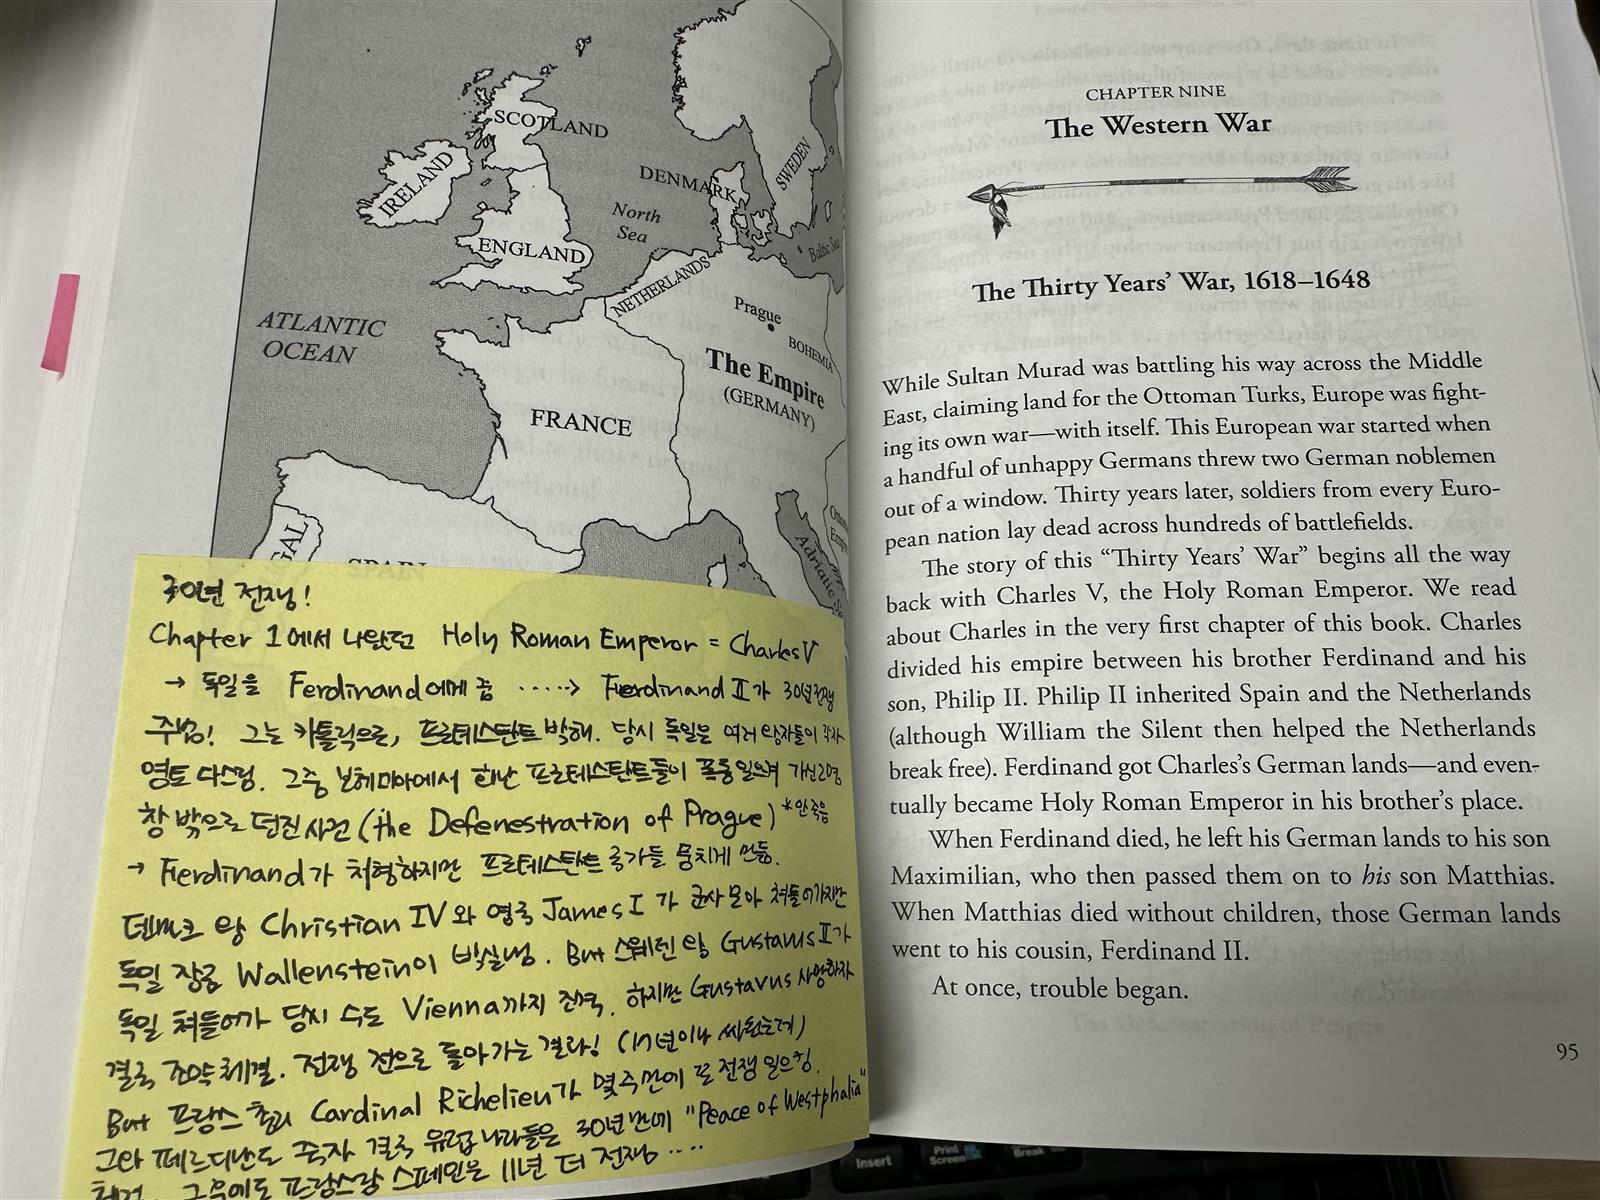 SCOTLAND
IRELAND
ENGLAND
DENMARK
SWEDEN
North
Sea
Baltic Sea
NETHERLANDS
ATLANTIC
OCEAN
Prague
BOHEMIA
The Empire
(GERMANY)
FRANCE
GAL
SPAIN
Adriatic
30년 전쟁!
Chapter 1에서 나왔던 Holy Roman Emperor = Charles V
→ 독일을 Ferdinand에게 줌 ·····> Ferdinand II가 30년전쟁
주범! 그는 카톨릭으로, 프로테스탄트 박해. 당시 독일은 여러 왕자들이 각자
영토 다스림. 그중 보헤미아에서 화난 프로테스탄트들이 폭동 일으켜 가신 2명
창 밖으로 던진 사건 (the Defenestration of Prague) *안죽음
→ Ferdinand가 처형하지만 프로테스탄트 국가들 뭉치게 만듦.
덴마크 왕 Christian IV와 영국 James I 가 군사 모아 쳐들어가지만
독일 장군 Wallenstein이 박살냄. But 스웨덴 왕 Gustavus II가
독일 쳐들어가 당시 수도 Vienna까지 진격. 하지만 Gustavus 사망하자
결국 조약 체결. 전쟁 전으로 돌아가는 결과! (17년이나 싸웠는데)
But 프랑스 총리 Cardinal Richelieu가 몇주만에 또 전쟁 일으킴.
그러나 페르디난도 죽자 결국 유럽 나라들은 30년만에 "Peace of Westphalia"
체결. 그후에도 프랑스랑 스페인은 11년 더 전쟁 ....
CHAPTER NINE
The Western War
The Thirty Years’ War, 1618–1648
While Sultan Murad was battling his way across the Middle
East, claiming land for the Ottoman Turks, Europe was fight-
ing its own war—with itself. This European war started when
a handful of unhappy Germans threw two German noblemen
out of a window. Thirty years later, soldiers from every Euro-
pean nation lay dead across hundreds of battlefields.
The story of this “Thirty Years’ War” begins all the way
back with Charles V, the Holy Roman Emperor. We read
about Charles in the very first chapter of this book. Charles
divided his empire between his brother Ferdinand and his
son, Philip II. Philip II inherited Spain and the Netherlands
(although William the Silent then helped the Netherlands
break free). Ferdinand got Charles’s German lands—and even-
tually became Holy Roman Emperor in his brother’s place.
When Ferdinand died, he left his German lands to his son
Maximilian, who then passed them on to his son Matthias.
When Matthias died without children, those German lands
went to his cousin, Ferdinand II.
At once, trouble began.
95
Insert
Print
Screen
Break